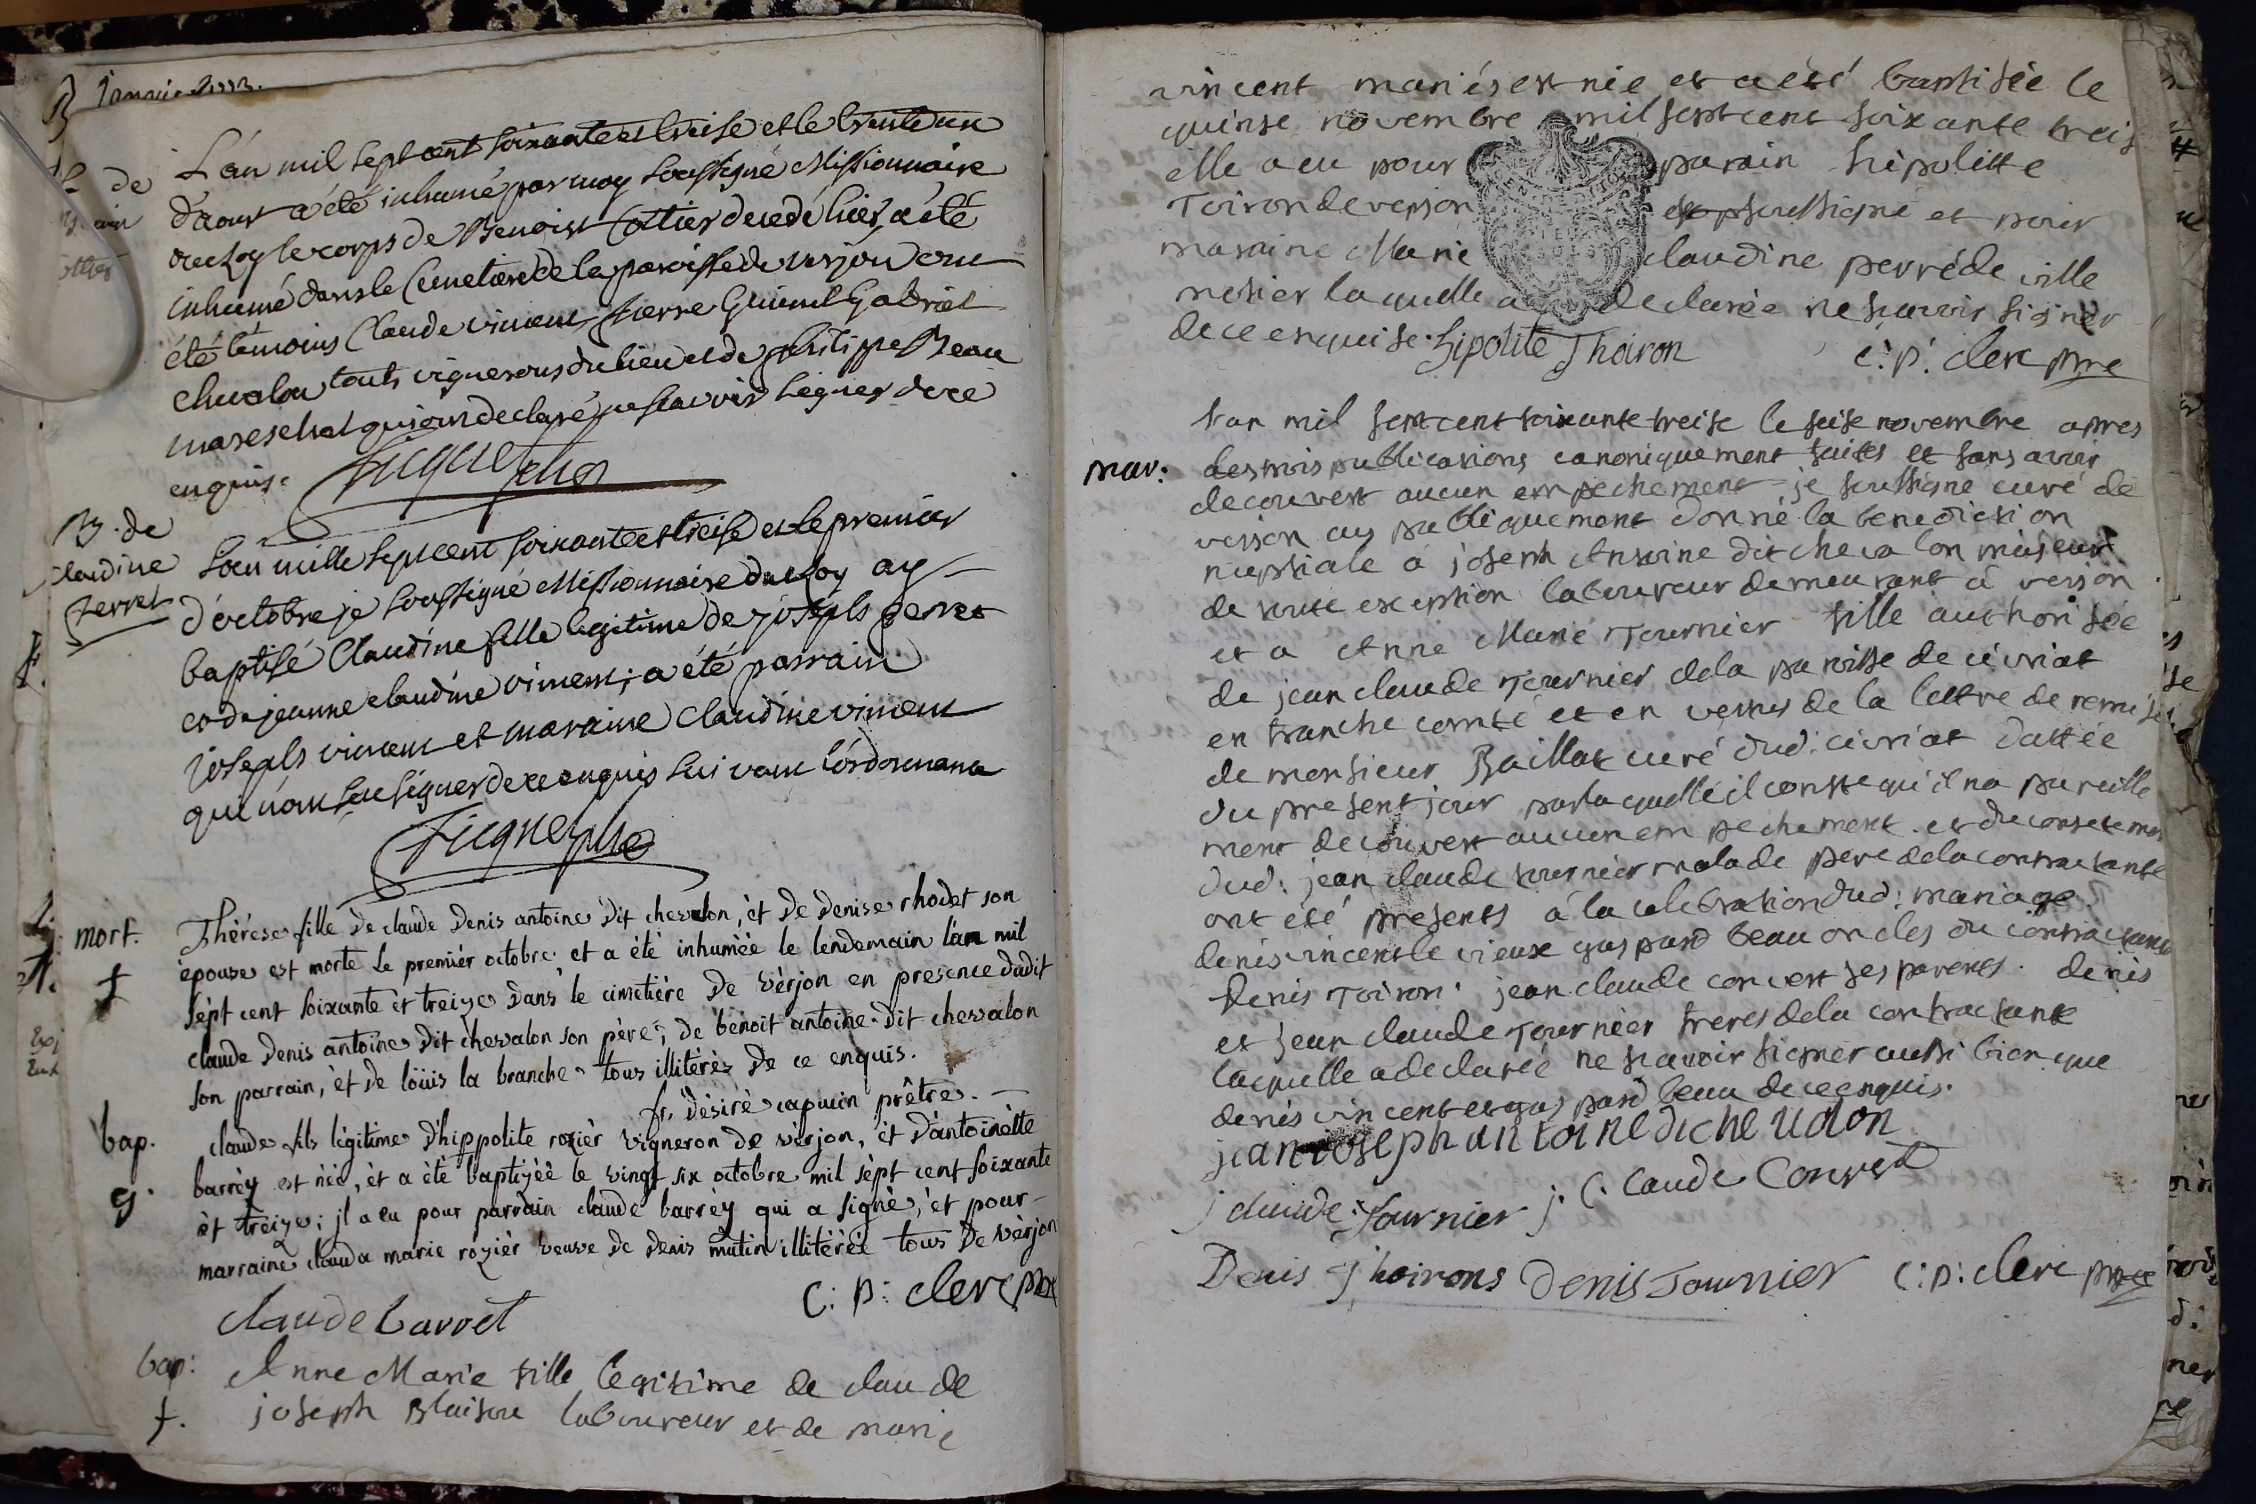 janvier 1773.
L'án mil sept cent soixante et treise et le trente un
d'aoust a été inhumé par moy soussigné Missionnaire
du Roy le corps de Benoist Cottier decedé hier, a été
inhumé dans le Cimetiere de la paroisse de verjon ont
été témoins Claude vincent, pierre Guinnil Gabriel
Chevalon touts vignerons du lieu et de philippe Beau
mareschal qui ont declaré ne scavoir signer de ce
enquis.
B. de
claudine
perret
L'an mille sept cent soixante et treise et le premier
d'octobre je soussigné Missionnaire du Roy ay
baptisé Claudine fille legitime de joseph perret
et de jeanne claudine vincent; a été parrain
joseph vincent et maraine Claudine vincent
qui n'ont sçu signer de ce enquis suivant l'ordonnance
mort.
Thérèse fille de claude denis antoine dit chevalon, èt de denise rhodet son
épouse est morte le premièr octobre et a èté inhumée le lendemain l'an mil
sèpt cent soixante èt treize dans le cimetière de Vèrjon en presence dudit
claude denis antoine dit chevalon son pèrè, de bénoit antoine dit chevalon
son parrain, èt de löüis la branche tous illitérés de ce enquis.
fr. désiré capucin prêtre.
bap.
g.
claude fils légitime d'hippolite rozièr vigneron de vèrjon, èt d'antoinètte
barrèy est néé, èt a èté baptizéé le vingt six octobre mil sèpt cent soixante
èt treize; jl a eu pour parrain claude barrèy qui a signè, èt pour
marraine clauda marie rozièr veuve de denis mutin illitérée tous de vèrjon
C: p: clerc ptre
claude barret
bap:
f.
Anne Marie fille legitime de claude
joseph Blaison laboureur et de marie
vincent mariés est née et a été baptisée le
quinse novembre mil sept cent soixante treis
elle a eu pour parain hipolitte
Toiron de verjon soussigné et pour
maraine Marie claudine perré de ville
motier laquelle a declarée ne sçavoir signer
de ce enquise. hipolite Thoiron c: p: clerc ptre
mar:
L'an mil sept cent soixante treise le seise novembre apres
les trois publications canoniquement faites et sans avoir
decouvert aucun empechement je soussigné curé de
verjon ay publiquement donné la benediction
nuptiale a joseph Antoine dit chevalon majeur
de toute exception laboureur demeurant a verjon
et a Anne Marie Tournier fille authorisée
de jean claude Tournier de la paroisse de civriat
en franche comté et en vertus de la lettre de remise
de monsieur Baillat curé dud: civriat dattée
du present jour par laquelle il conste qu'il n'a pareille
ment decouvert aucun empechement et du consetement
dud: jean claude tournier malade pere de la contractante
ont été presents a la celebration dud: mariage
denis vincent le vieux gaspard beau oncles du contractant
denis Toiron. jean claude convert ses parents. denis
et jean claude Tournier freres de la contractante
laquelle a declarée ne scavoir signer aussi bien que
denis vincent et gaspard beau de ce enquis.
jean ioseph antoine dit cheualon
j claude Tournier j. C. Claude Convert
Denis Thoirons Denis Tournier C: p: clerc ptre